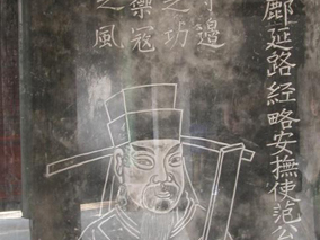 鄜延路經略安撫使范公
守邊
之功
禦寇
之風